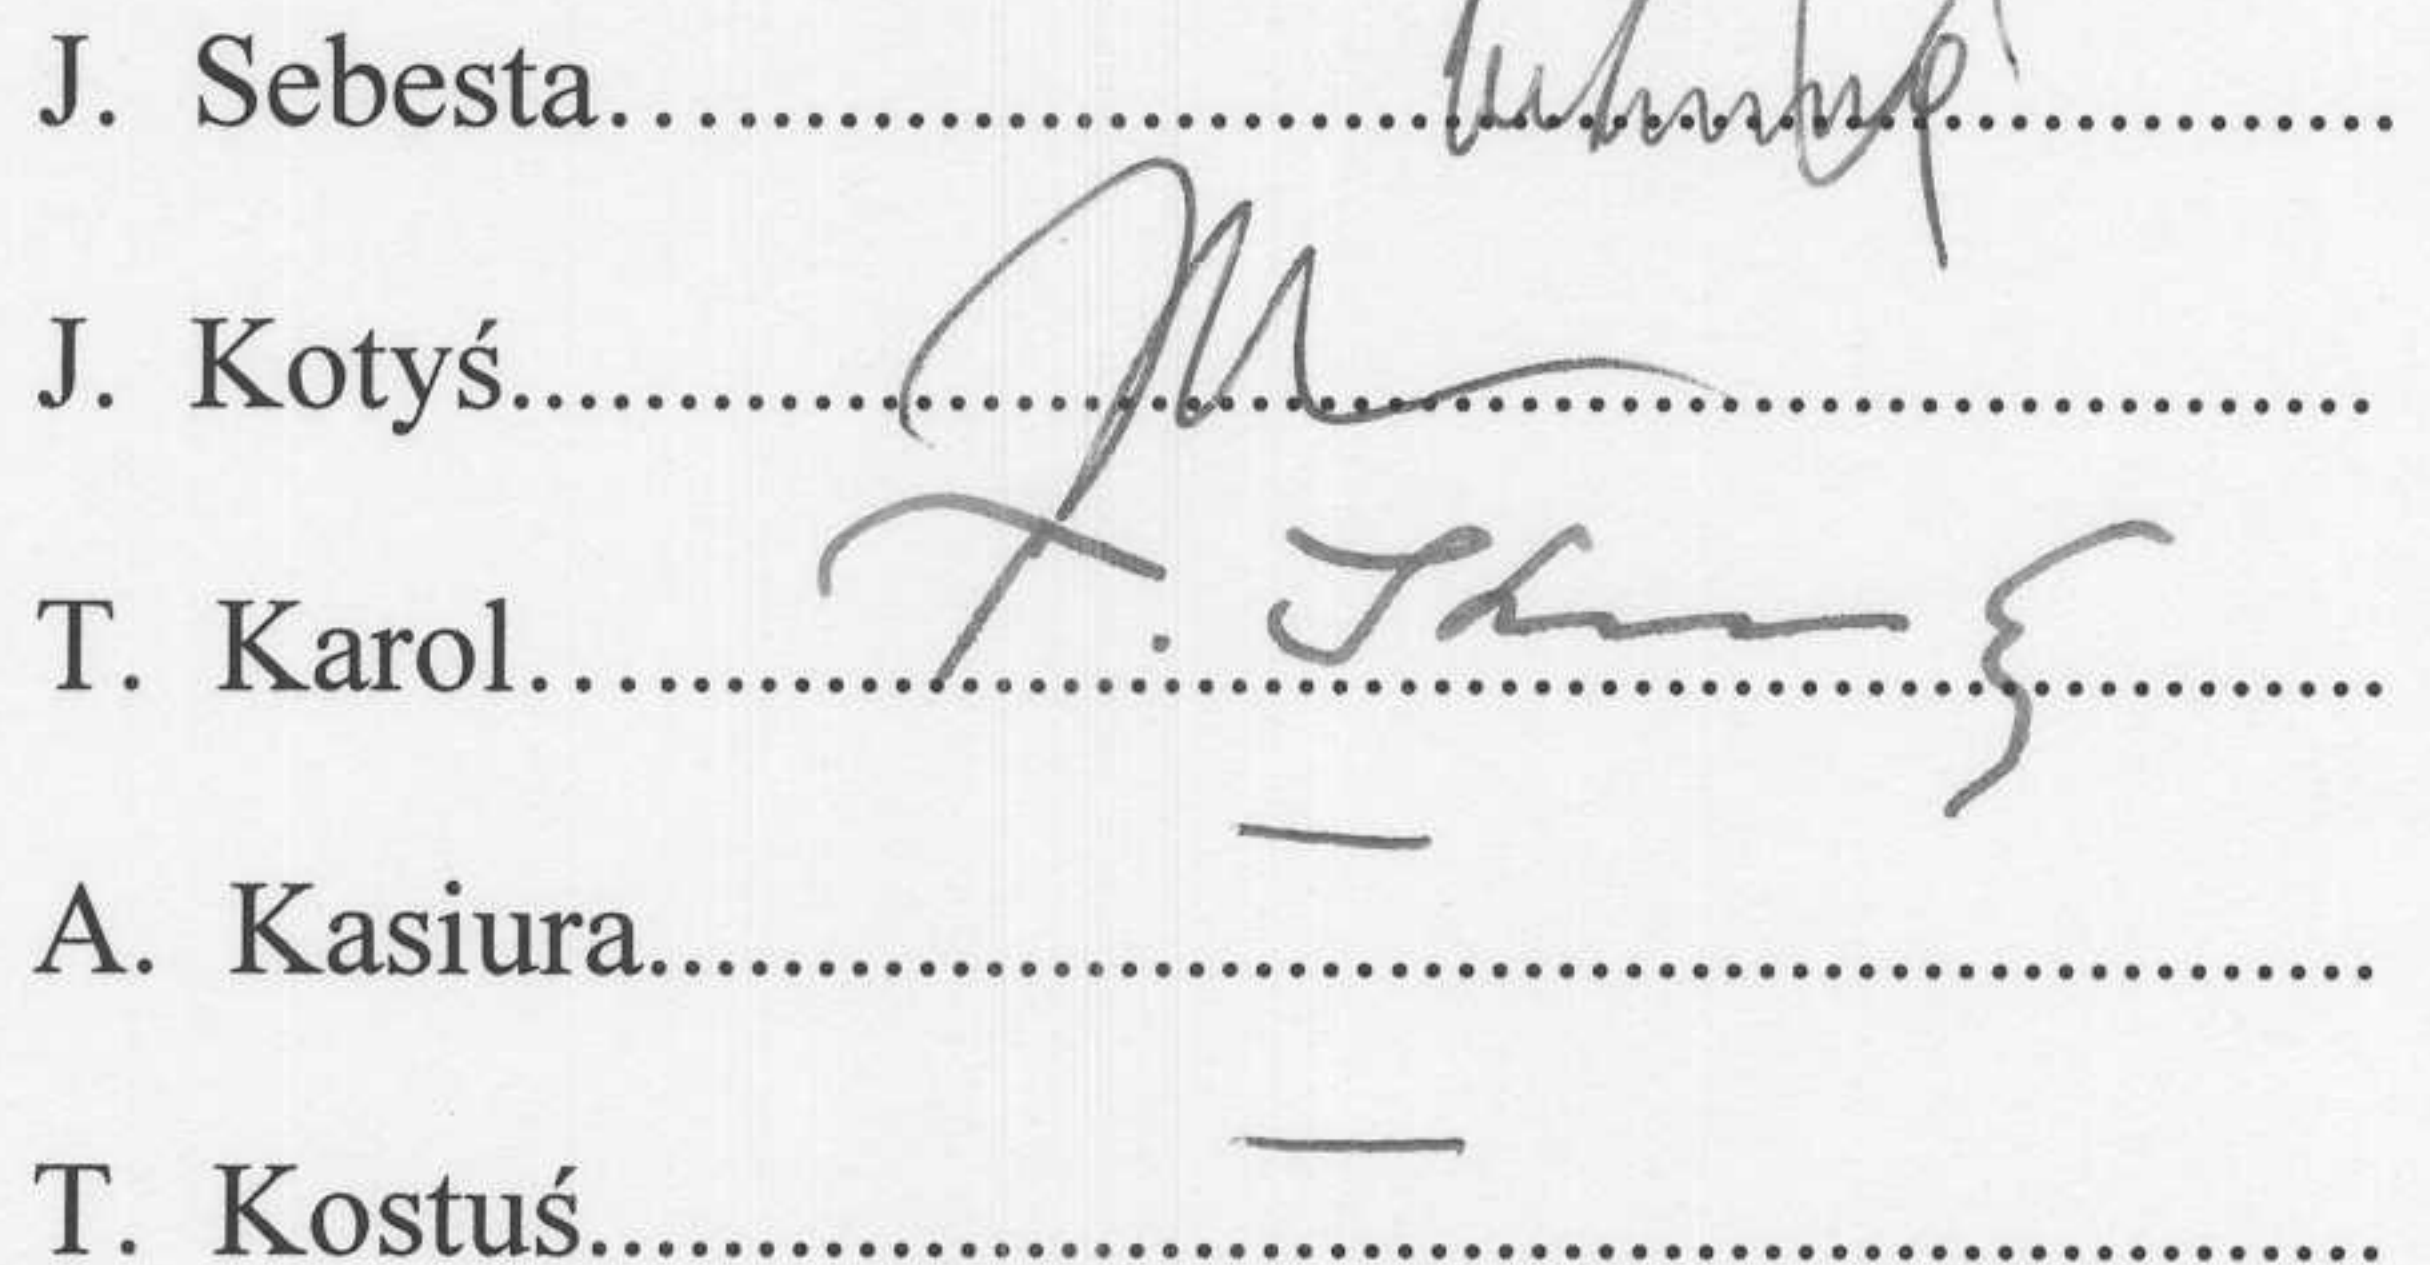 J. Sebesta..........................................................
J. Kotyś..........................................................
T. Karol..........................................................
—
A. Kasiura..........................................................
—
T. Kostuś..........................................................